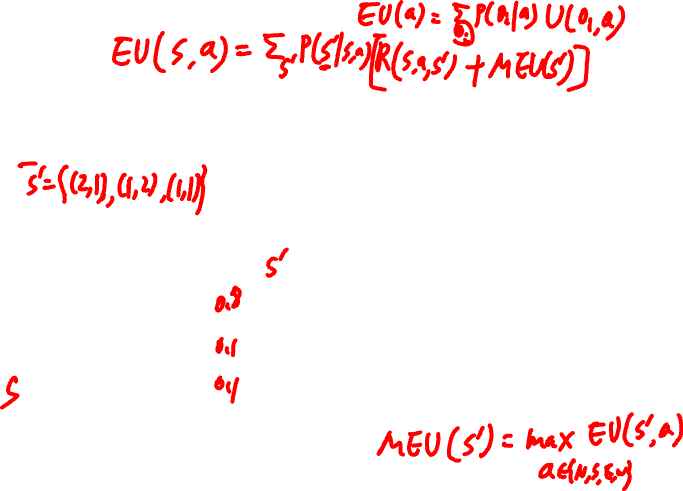 EU(a) = Σ_{o_i} P(o_i|a) U(o_i,a)
EU(s,a) = Σ_{s'} P(s'|s,a)[R(s,a,s') + MEU(s')]
s' = {(2,1), (1,2), (1,1)}
s'
0.8
0.1
0.1
S
MEU(s') = max EU(s',a)
a∈{N,S,E,W}